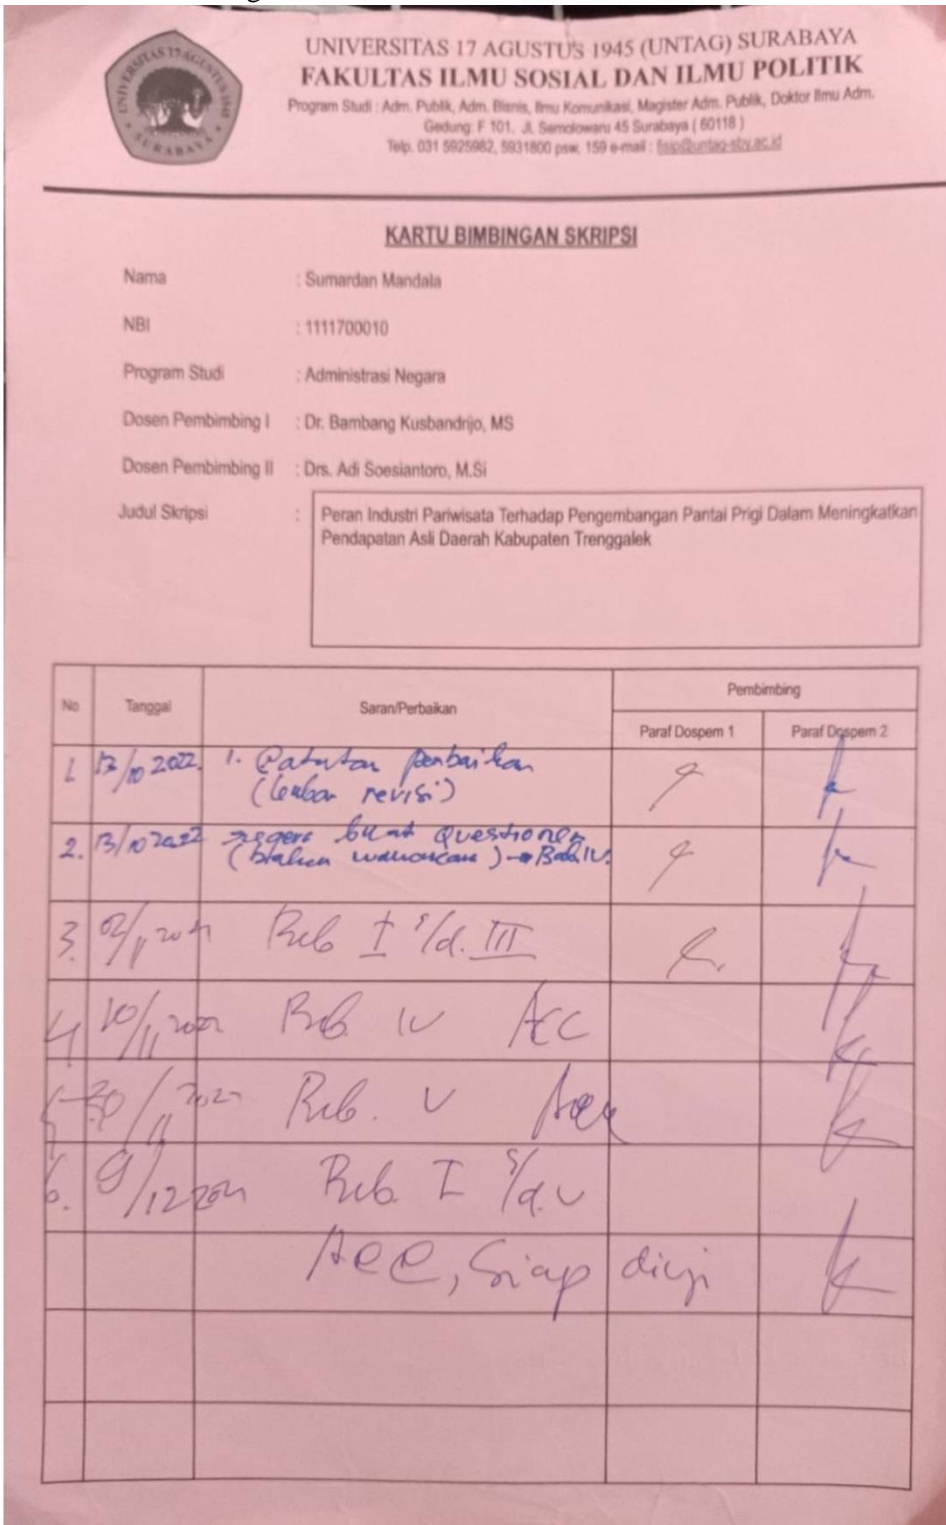 UNIVERSITAS 17 AGUSTUS 1945
SURABAYA
UNIVERSITAS 17 AGUSTUS 1945 (UNTAG) SURABAYA
FAKULTAS ILMU SOSIAL DAN ILMU POLITIK
Program Studi : Adm. Publik, Adm. Bisnis, Ilmu Komunikasi, Magister Adm. Publik, Doktor Ilmu Adm.
Gedung: F 101, Jl. Semolowaru 45 Surabaya ( 60118 )
Telp. 031 5925982, 5931800 psw. 159 e-mail : fisip@untag-sby.ac.id
KARTU BIMBINGAN SKRIPSI
Nama : Sumardan Mandala
NBI : 1111700010
Program Studi : Administrasi Negara
Dosen Pembimbing I : Dr. Bambang Kusbandrijo, MS
Dosen Pembimbing II : Drs. Adi Soesiantoro, M.Si
Judul Skripsi : Peran Industri Pariwisata Terhadap Pengembangan Pantai Prigi Dalam Meningkatkan
Pendapatan Asli Daerah Kabupaten Trenggalek
No Tanggal Saran/Perbaikan Pembimbing
Paraf Dospem 1 Paraf Dospem 2
1. 13/10 2022. 1. Catatan perbaikan
(lembar revisi)
2. 13/10 2022 segera buat Questioner
( wawancara ) → Bab IV.
3. Bab I s/d. III
4. 10/11 2022 Bab IV ACC
5. 30/11 2022 Bab. V Acc
6. 9/12 2022 Bab. I s/d. V
Acc, Siap diuji